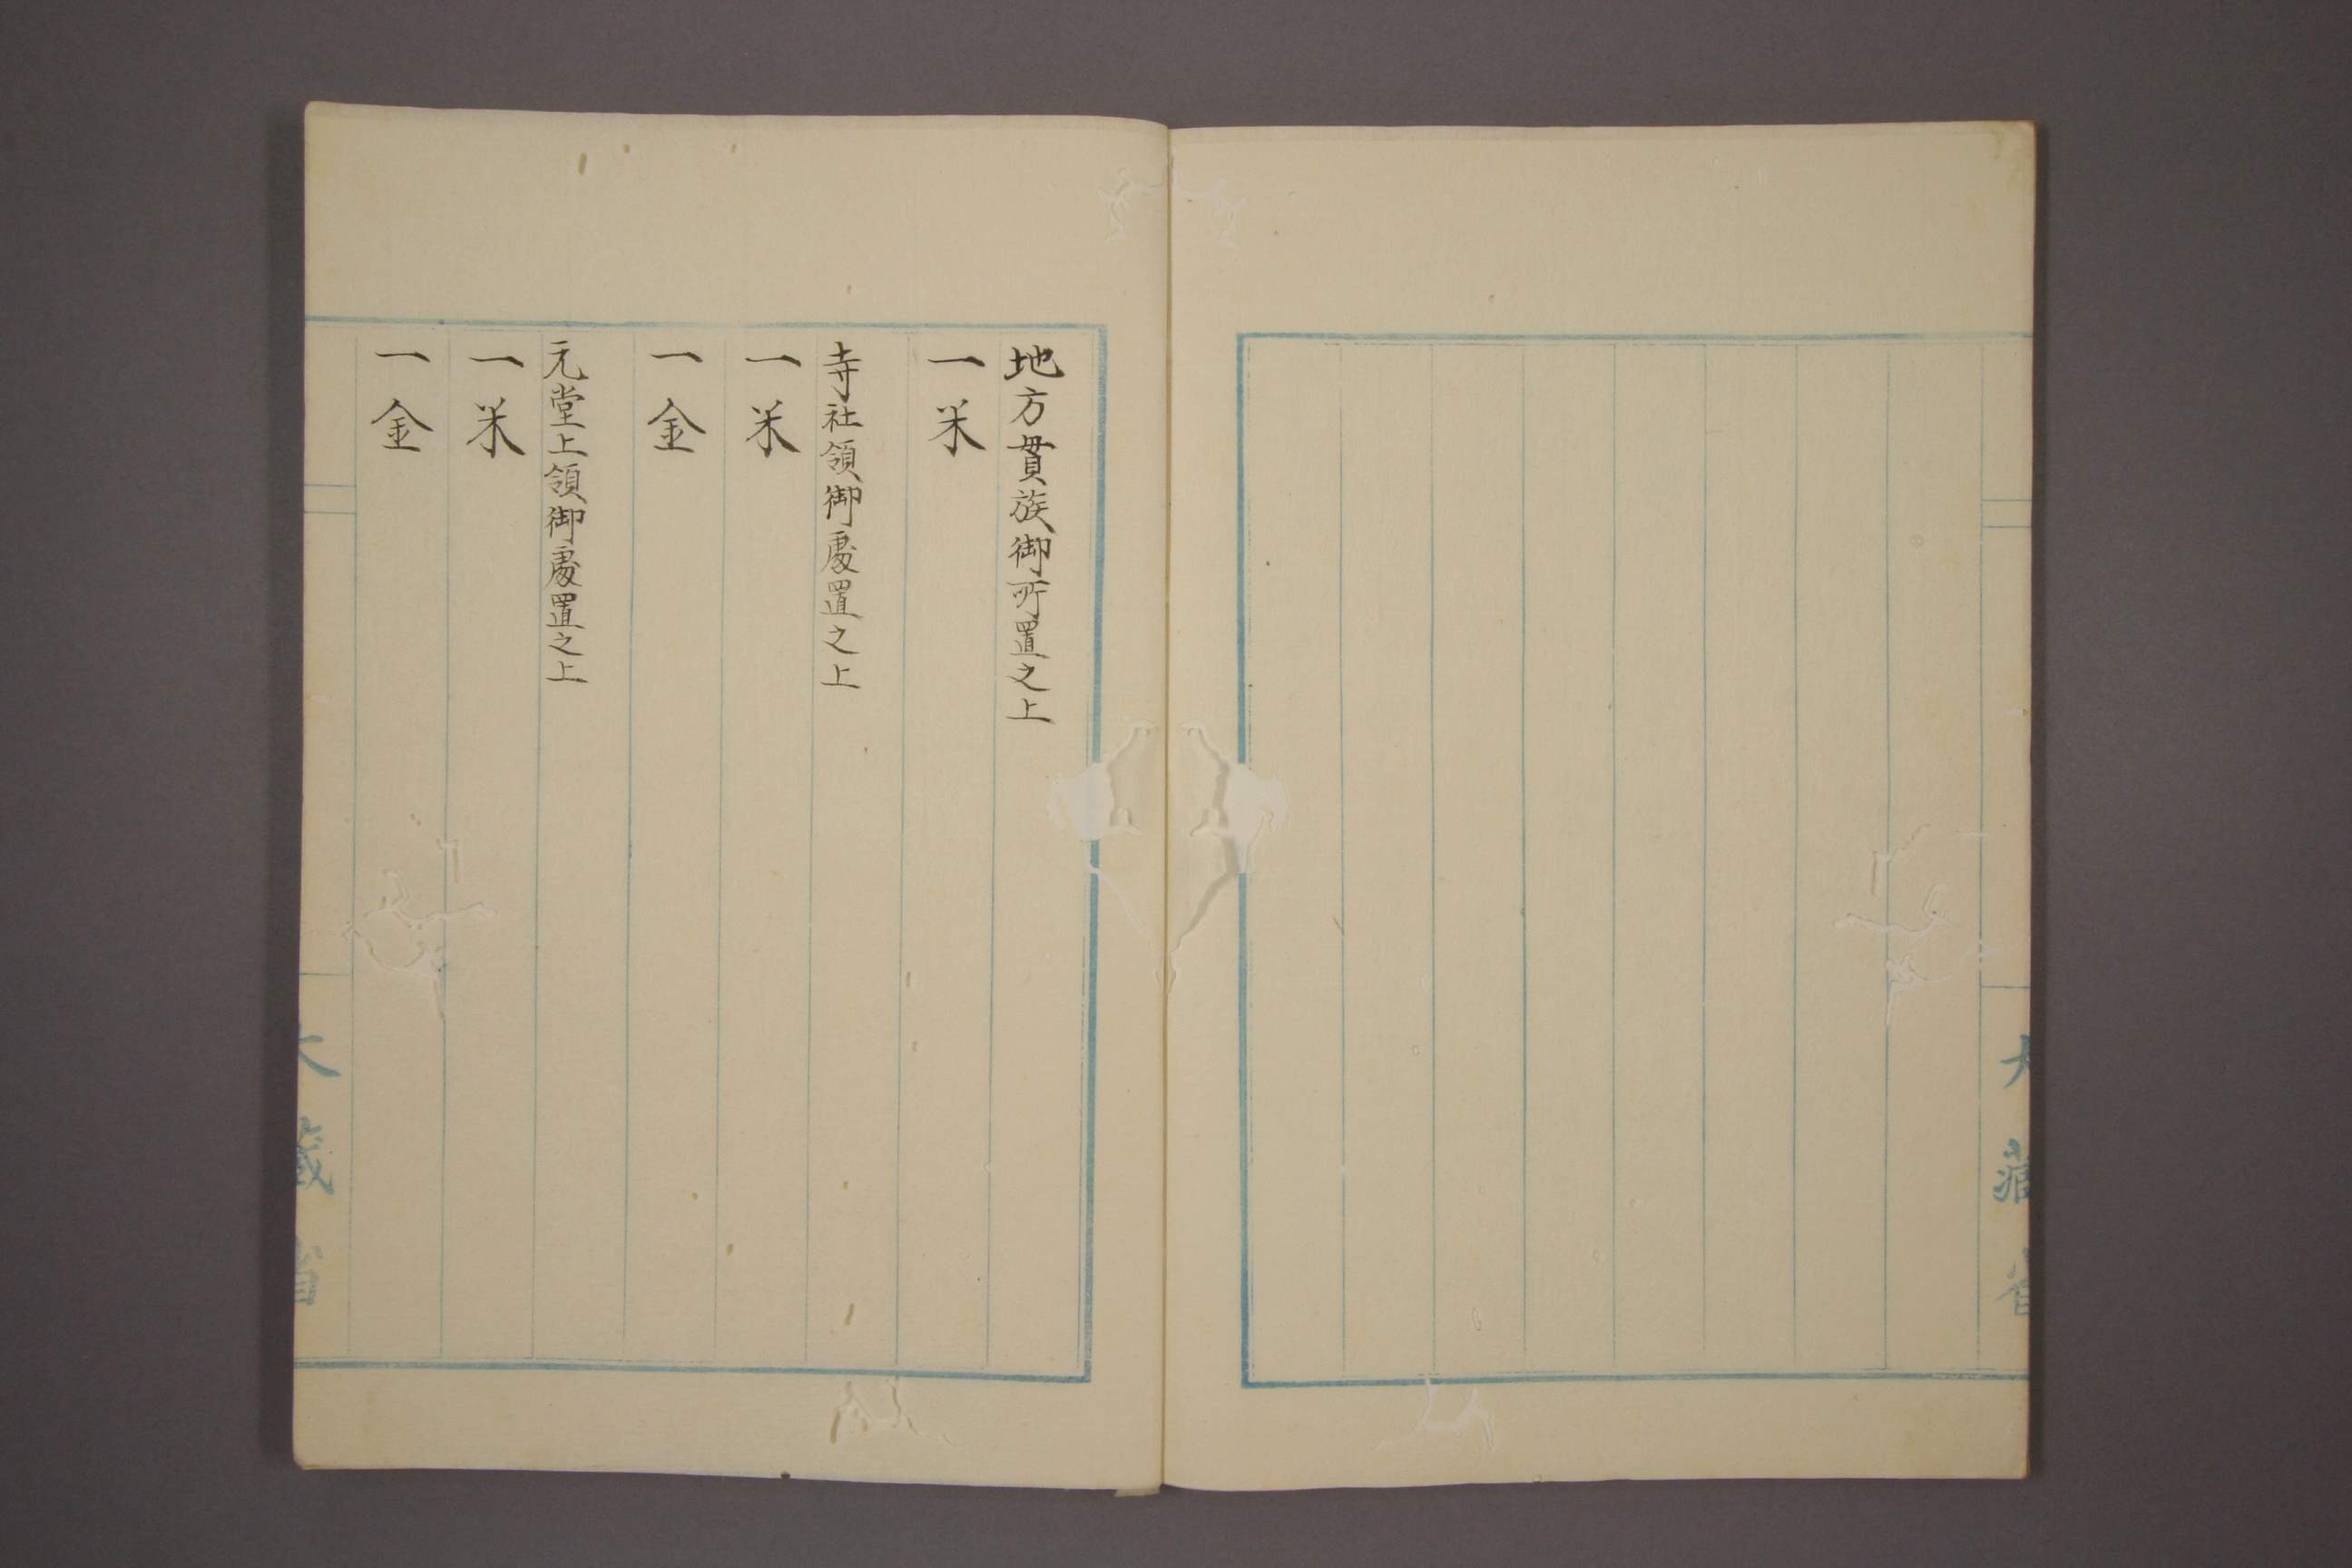 大藏省
地方貫族御所置之上
一米
寺社領御處置之上
一米
一金
元堂上領御處置之上
一米
一金
大藏省